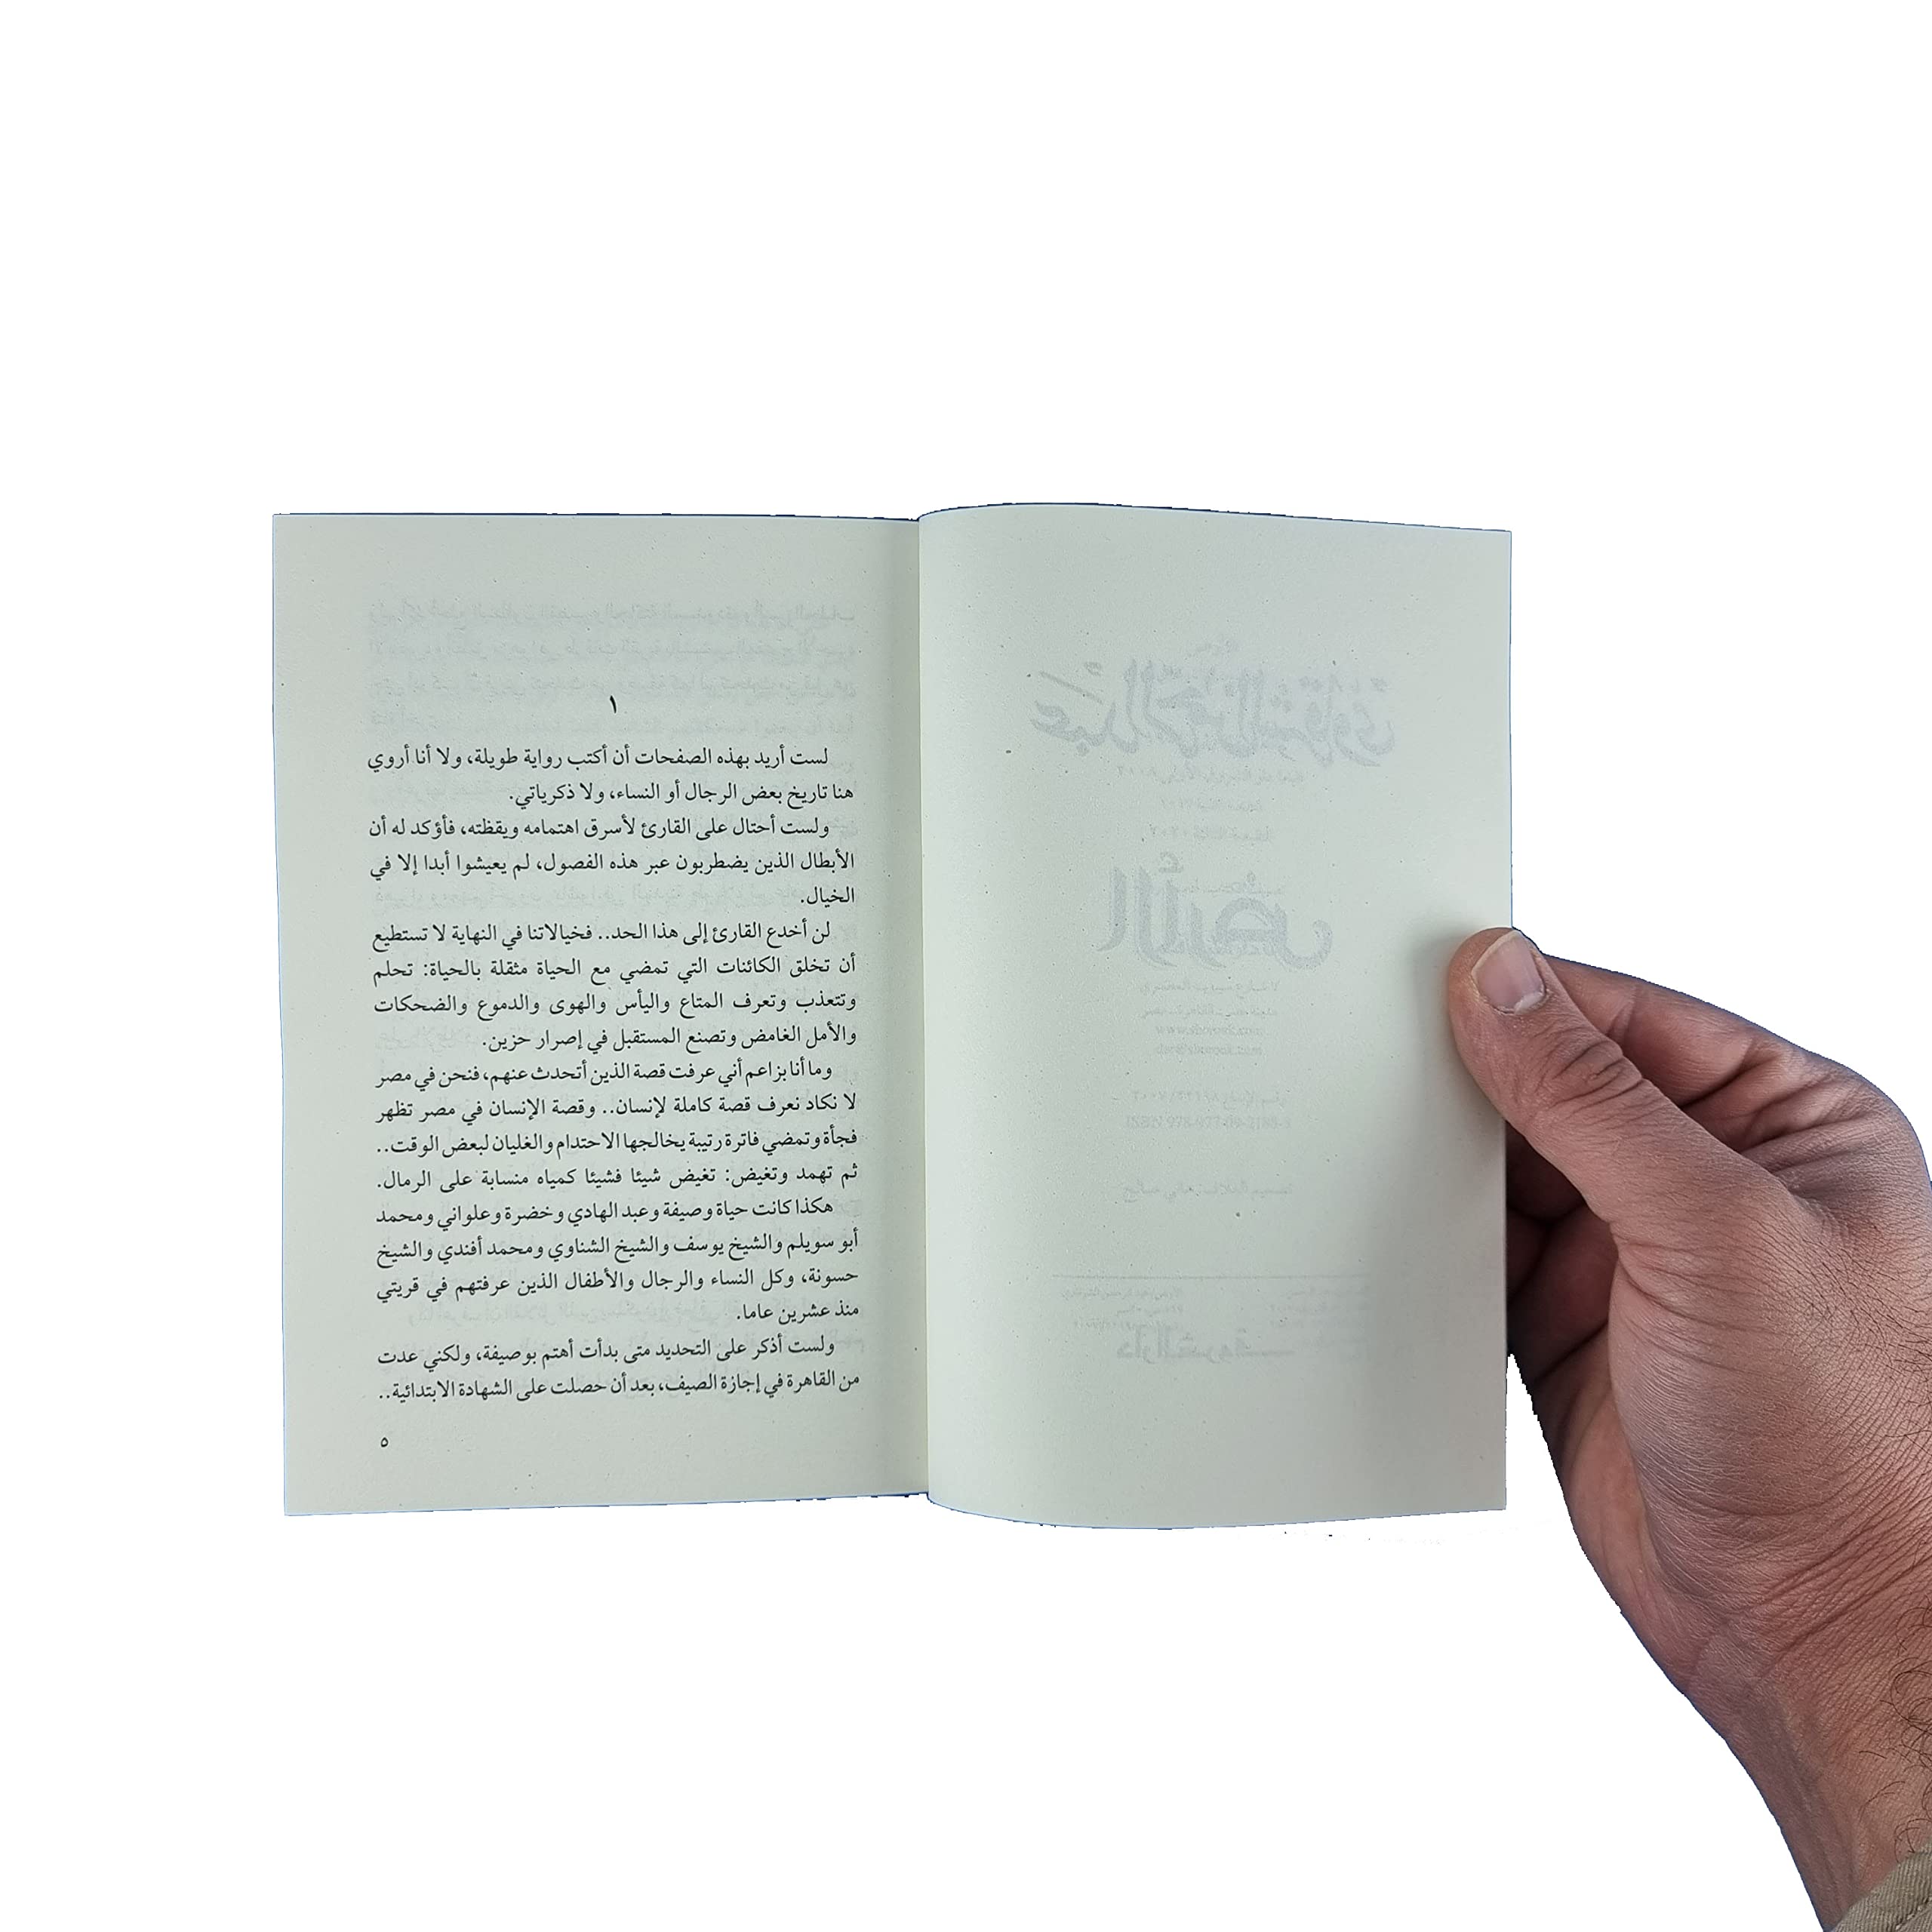 ١
لست أريد بهذه الصفحات أن أكتب رواية طويلة، ولا أنا أروي
هنا تاريخ بعض الرجال أو النساء، ولا ذكرياتي.
ولست أحتال على القارئ لأسرق اهتمامه ويقظته، فأؤكد له أن
الأبطال الذين يضطربون عبر هذه الفصول، لم يعيشوا أبدا إلا في
الخيال.
لن أخدع القارئ إلى هذا الحد.. فخيالاتنا في النهاية لا تستطيع
أن تخلق الكائنات التي تمضي مع الحياة مثقلة بالحياة: تحلم
وتتعذب وتعرف المتاع واليأس والهوى والدموع والضحكات
والأمل الغامض وتصنع المستقبل في إصرار حزين.
وما أنا بزاعم أني عرفت قصة الذين أتحدث عنهم، فنحن في مصر
لا نكاد نعرف قصة كاملة لإنسان.. وقصة الإنسان في مصر تظهر
فجأة وتمضي فاترة رتيبة يخالجها الاحتدام والغليان لبعض الوقت..
ثم تهمد وتغيض: تغيض شيئا فشيئا كمياه منسابة على الرمال.
هكذا كانت حياة وصيفة وعبد الهادي وخضرة وعلواني ومحمد
أبو سويلم والشيخ يوسف والشيخ الشناوي ومحمد أفندي والشيخ
حسونة، وكل النساء والرجال والأطفال الذين عرفتهم في قريتي
منذ عشرين عاما.
ولست أذكر على التحديد متى بدأت أهتم بوصيفة، ولكني عدت
من القاهرة في إجازة الصيف، بعد أن حصلت على الشهادة الابتدائية..
٥